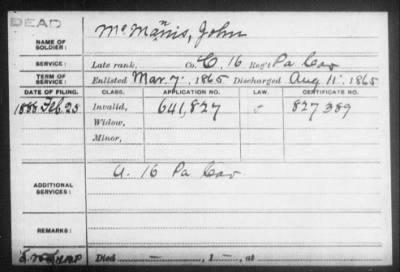 DEAD
NAME OF SOLDIER: McManis, John
SERVICE: Late rank, Co. C. 16 Reg't Pa Cav
TERM OF SERVICE: Enlisted Mar. 7. 1865 Discharged Aug 11. 1865
DATE OF FILING. CLASS. APPLICATION NO. LAW. CERTIFICATE NO.
1888 Feb 25 Invalid, 641,827 827389
Widow,
Minor,
ADDITIONAL SERVICES: 16 Pa Cav
REMARKS:
Died — , 1 — , at